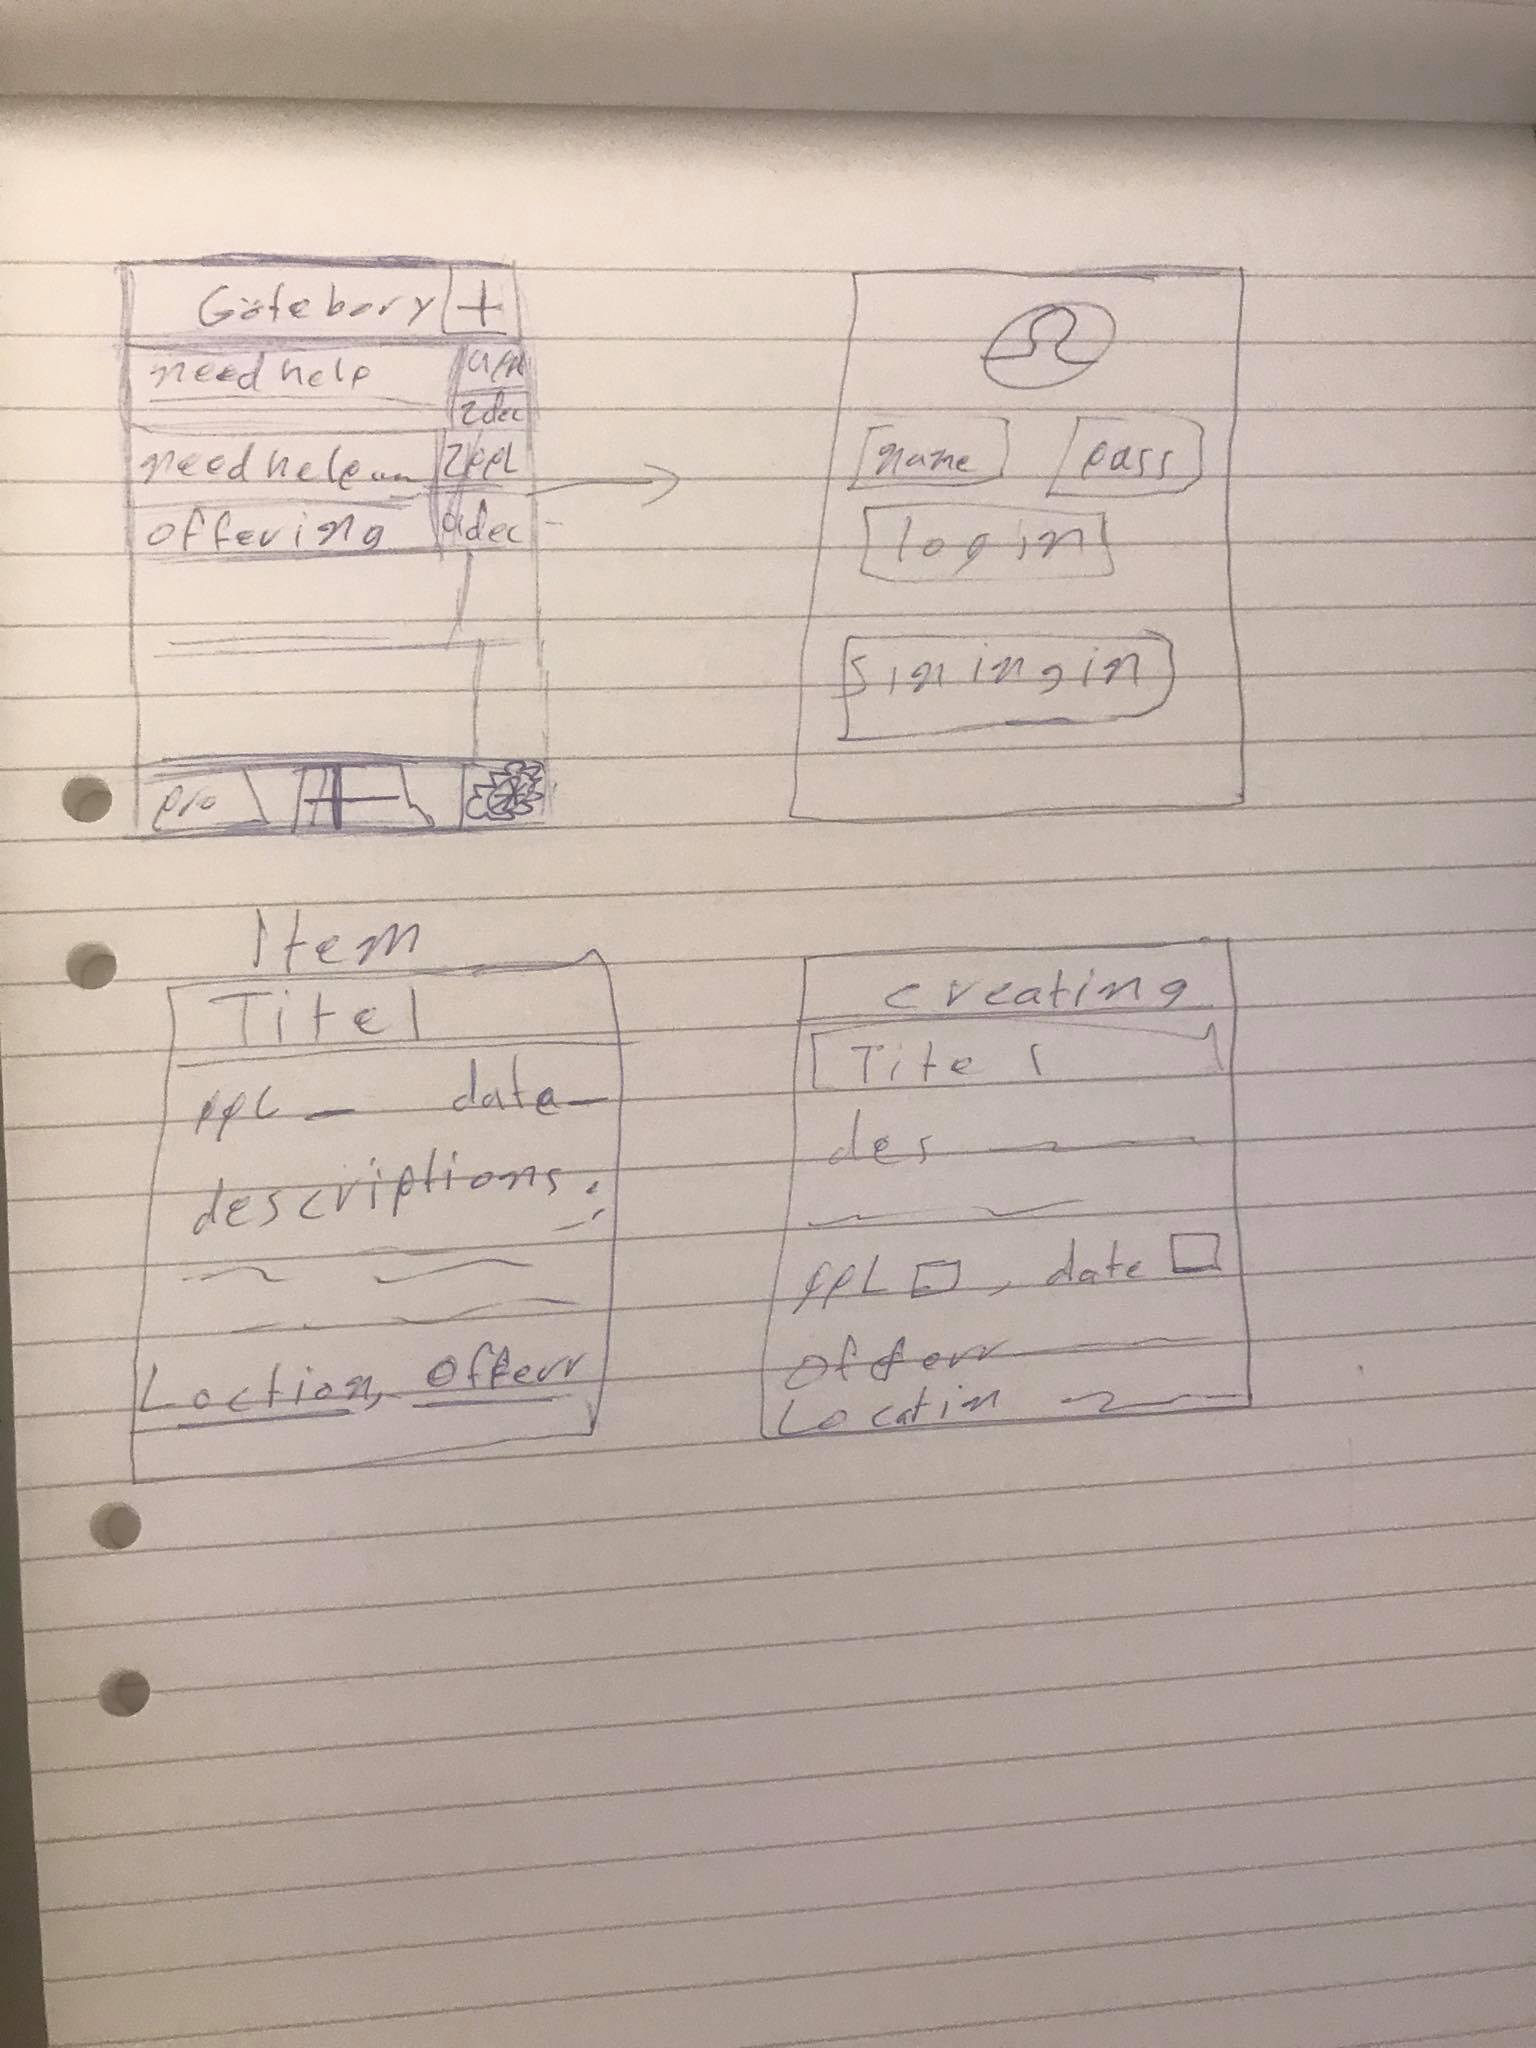 Göteborg +
need help 4ppl
2dec
need help 2ppl
offering 9dec
pro
name pass
login
sininging
Item
Titel
ppL date
descriptions:
Loction, Offerr
creating
Titel
des
ppL , date
Offerr
Locatin